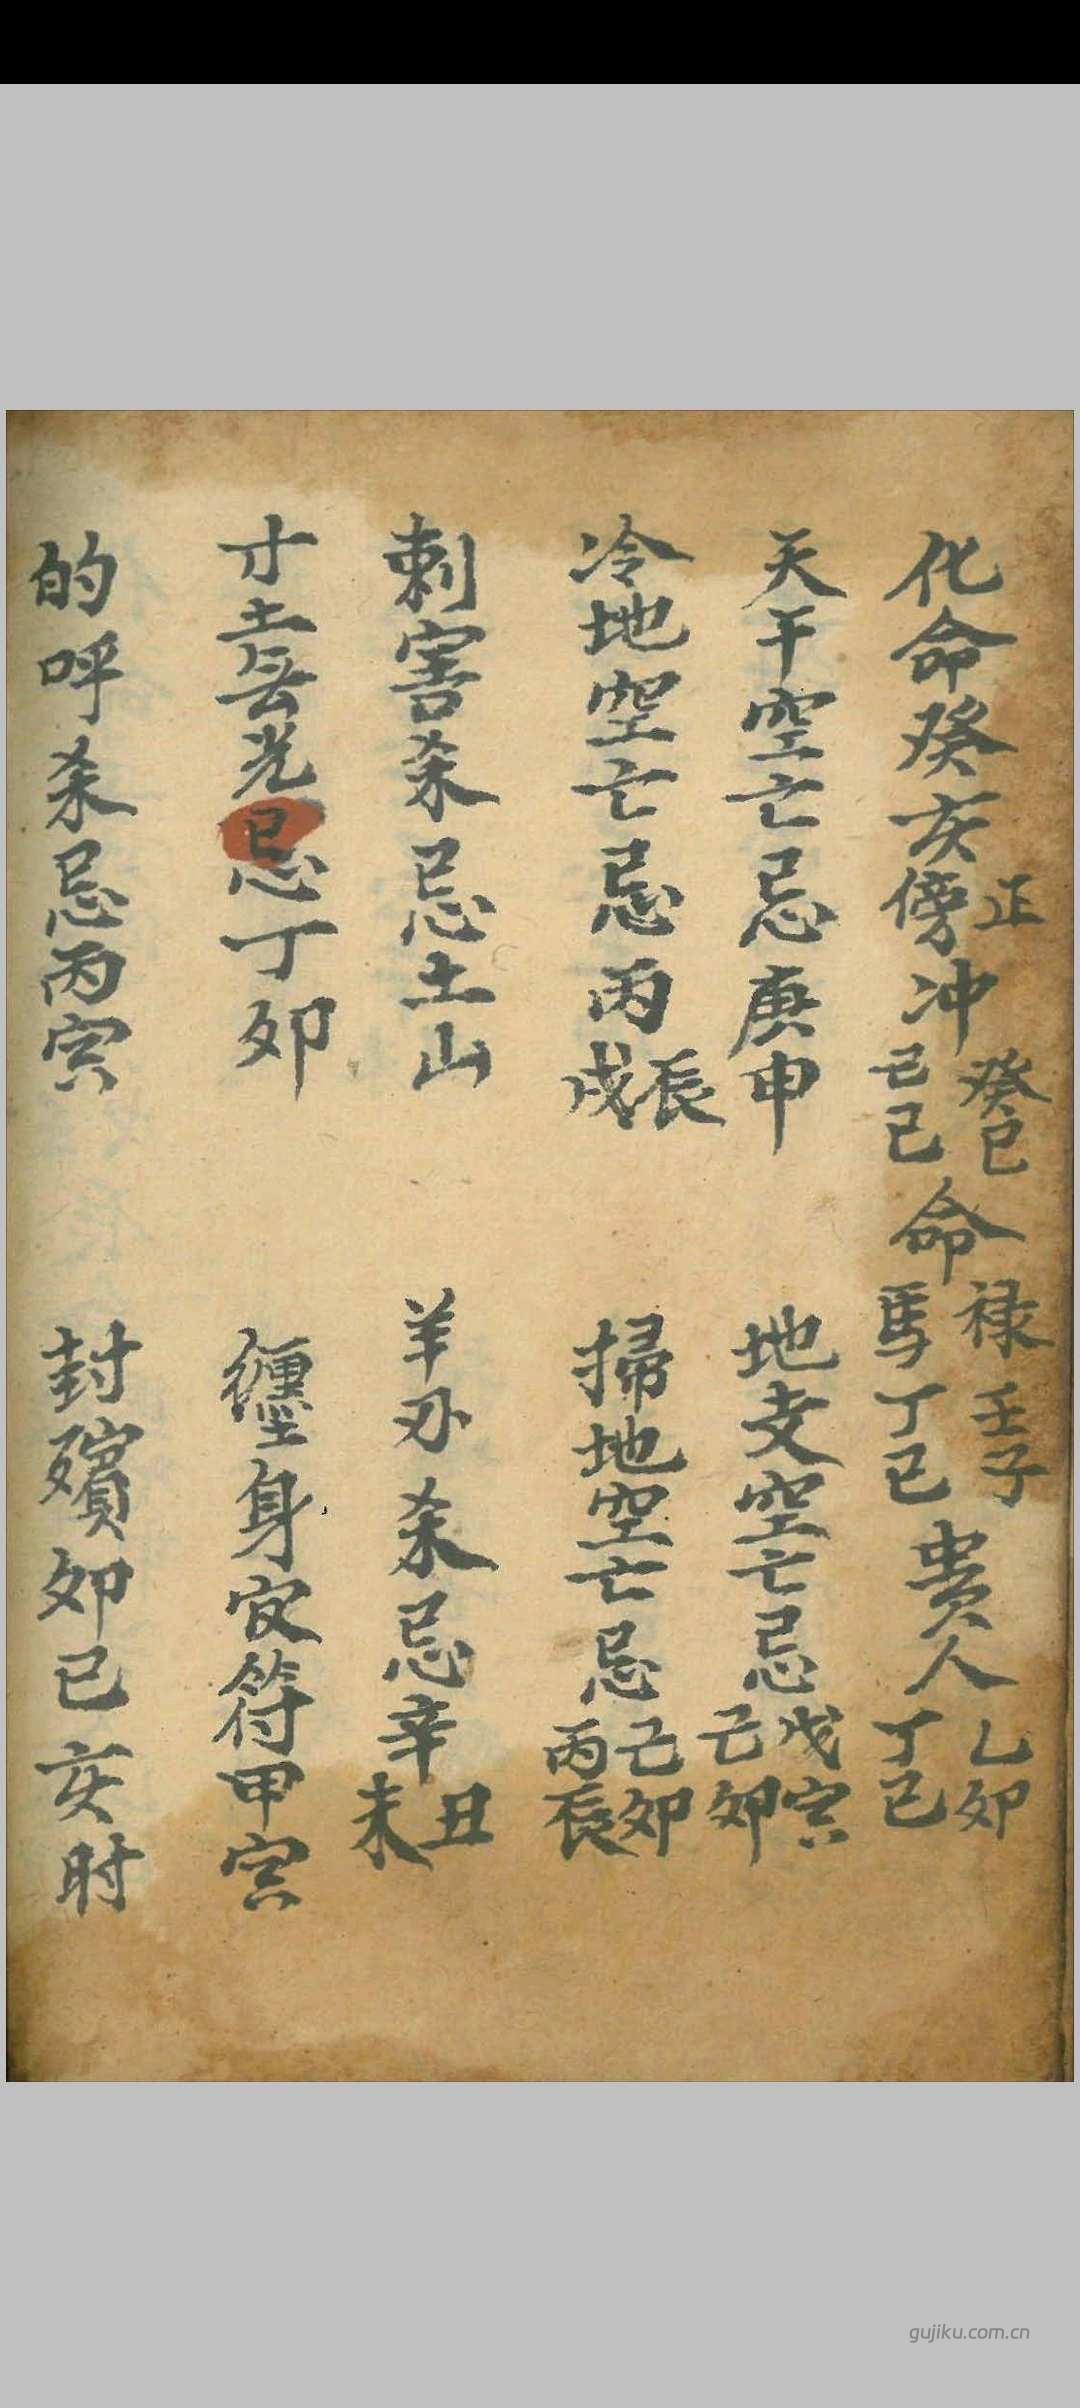 化命癸亥正傍冲癸巳己巳命禄壬子馬丁巳貴人乙卯丁巳
天干空亡忌庚申
地支空亡忌戊寅己卯
冷地空亡忌丙辰戌
掃地空亡忌己卯丙辰
刺害杀忌土山
羊刃杀忌辛丑未
寸土無光忌丁卯
纏身官符甲寅
的呼杀忌丙寅
封殯卯巳亥时
gujiku.com.cn